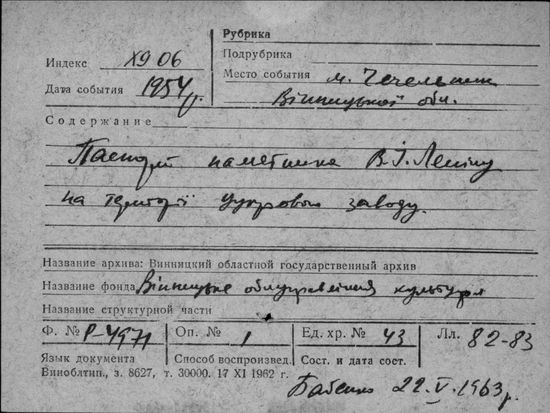 Рубрика
Индекс XI9 06
Подрубрика
Дата события 1954 р.
Место события м. Чечельник
Вінницької обл.
Содержание
Паспорт памятника В.І. Леніну
на території цукрового заводу.
Название архива: Винницкий областной государственный архив
Название фонда Вінницьке облуправління культури
Название структурной части
Ф. № Р-4971 Оп. № 1 Ед. хр. № 43 Лл. 82-83
Язык документа Способ воспроизвед. Сост. и дата сост.
Виноблтип., з. 8627, т. 30000. 17 XI 1962 г.
Бабенко 22.V.1963 р.